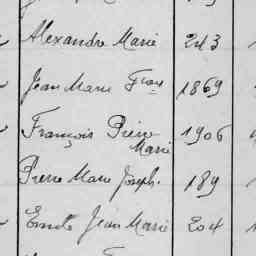 Alexandre Marie 243
Jean Marie Fçois 1869
François Pierre 1906
Marie
Pierre Marie Joseph. 189
Emile Jean Marie 204